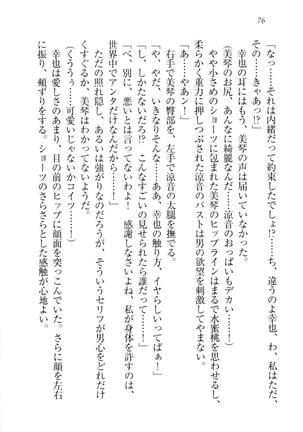 76
「なっ……それは内緒だって約束したでしょ!?　……ち、違うのよ幸也、わ、私はただ、
その……きゃあっ!?」
　幸也の耳にはもう、美琴の声は届いていなかった。
（美琴のお尻、あんなに綺麗なんだ……涼音のおっぱいもデカい……！）
　やや小さめのショーツに包まれた美琴のヒップラインはまるで水蜜桃を思わせるし、
柔らかく重力に押しつぶされた涼音のバストは男の欲望を刺激してやまない。
「あ……やぁン！」
　右手で美琴の臀部を、左手で涼音の太腿を撫でる。
「やっ、やだ、いきなりそんな……あっ、幸也、触り方、イヤらしいってばぁ！」
「し、しかたないだろ!?　こんなすごいの見せられたら誰だって……！」
「べ、別に、悪いとは言ってないわよ！　感謝しなさいよね、私が身体を許すのは、
世界中でアンタだけなんだから……！」
　ただの照れ隠し、あるいは強がりなのだろうが、そういうセリフが男心をどれだけ
くすぐるか、美琴はわかってないようだ。
（くうううぅ！　可愛いじゃないかコイツ……！）
　幸也は愛しさのあまり、目の前のヒップに顔面を突っこんでいた。さらに顔を左右
に振り、頬ずりをする。ショーツのさらさらとした感触が心地よい。